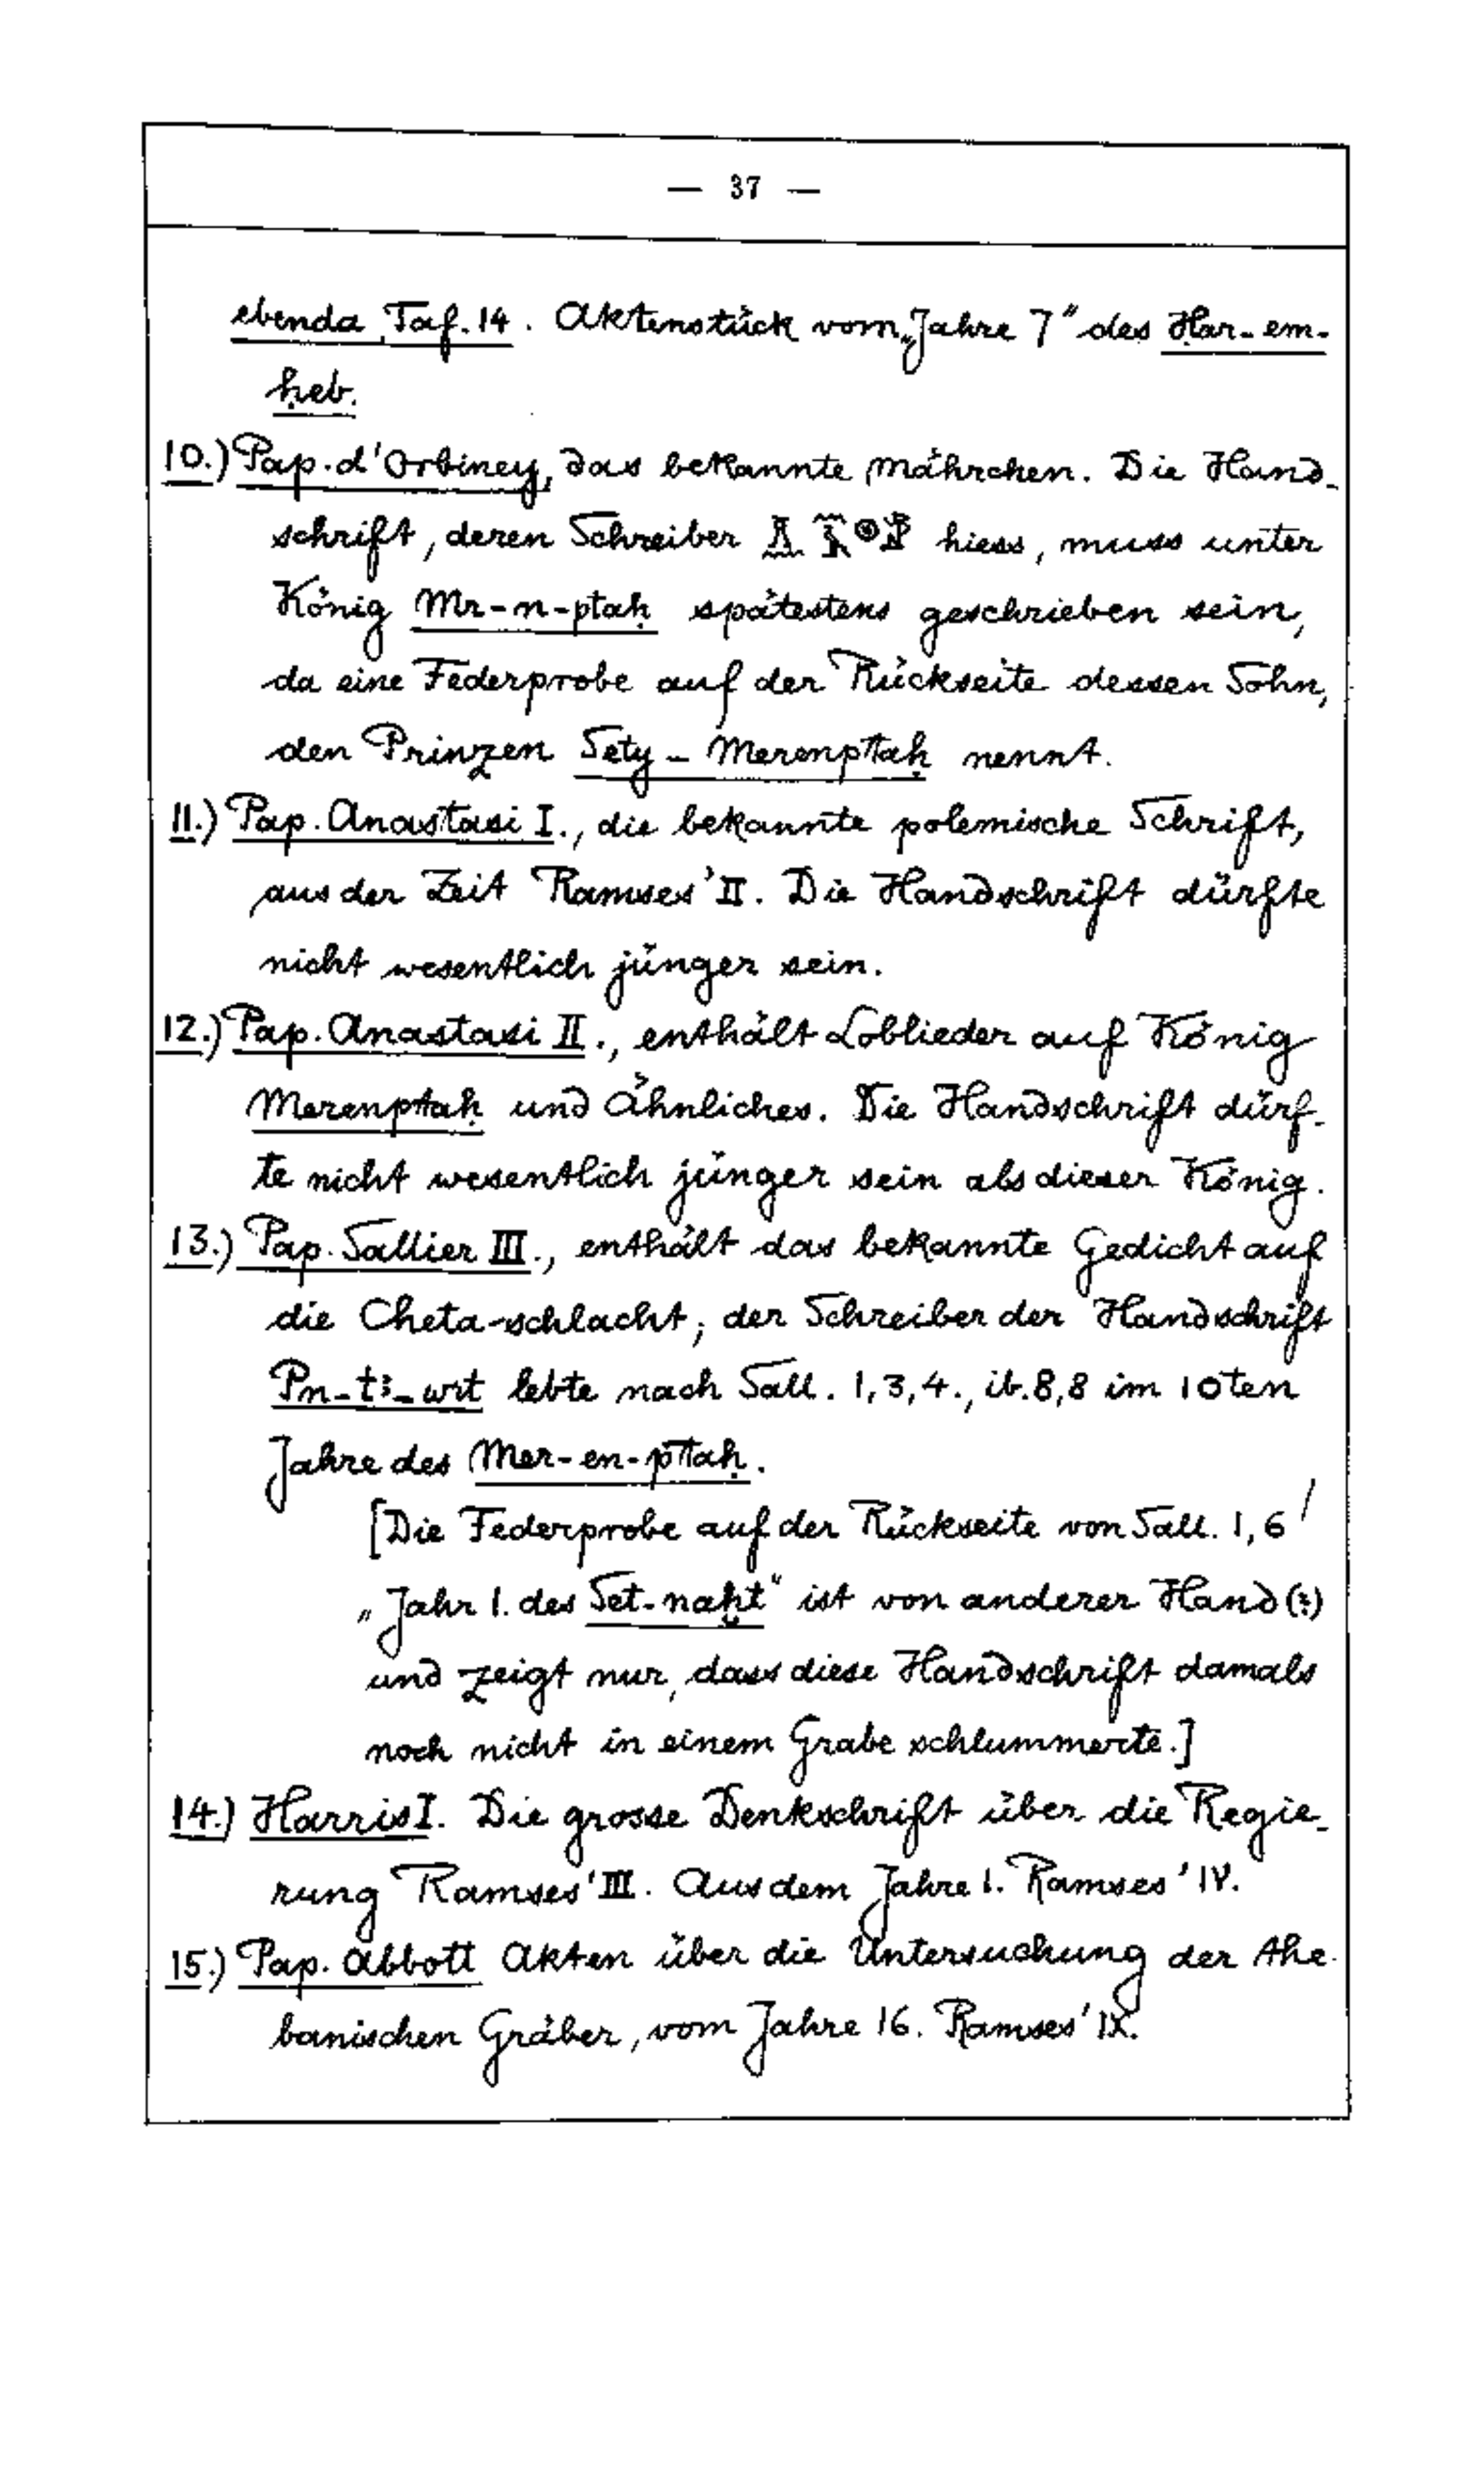 — 37 —
ebenda, Taf. 14. Aktenstück vom „Jahre 7" des Ḥar-em-
ḥeb.
10.) Pap. d'Orbiney, das bekannte Mährchen. Die Hand-
schrift, deren Schreiber hiess, muss unter
König Mr-n-ptaḥ spätestens geschrieben sein,
da eine Federprobe auf der Rückseite dessen Sohn,
den Prinzen Sety-Merenptaḥ nennt.
11.) Pap. Anastasi I., die bekannte polemische Schrift,
aus der Zeit Ramses' II. Die Handschrift dürfte
nicht wesentlich jünger sein.
12.) Pap. Anastasi II., enthält Loblieder auf König
Merenptaḥ und Ähnliches. Die Handschrift dürf-
te nicht wesentlich jünger sein als dieser König.
13.) Pap. Sallier III., enthält das bekannte Gedicht auf
die Cheta-schlacht; der Schreiber der Handschrift
Pn-tꜣ-wrt lebte nach Sall. 1,3,4., ib. 8,8 im 10ten
Jahre des Mer-en-ptaḥ.
[Die Federprobe auf der Rückseite von Sall. 1,6
„Jahr 1. des Set-naḫt" ist von anderer Hand (?)
und zeigt nur, dass diese Handschrift damals
noch nicht in einem Grabe schlummerte.]
14.) Harris I. Die grosse Denkschrift über die Regie-
rung Ramses' III. Aus dem Jahre 1. Ramses' IV.
15.) Pap. Abbott Akten über die Untersuchung der the-
banischen Gräber, vom Jahre 16. Ramses' IX.